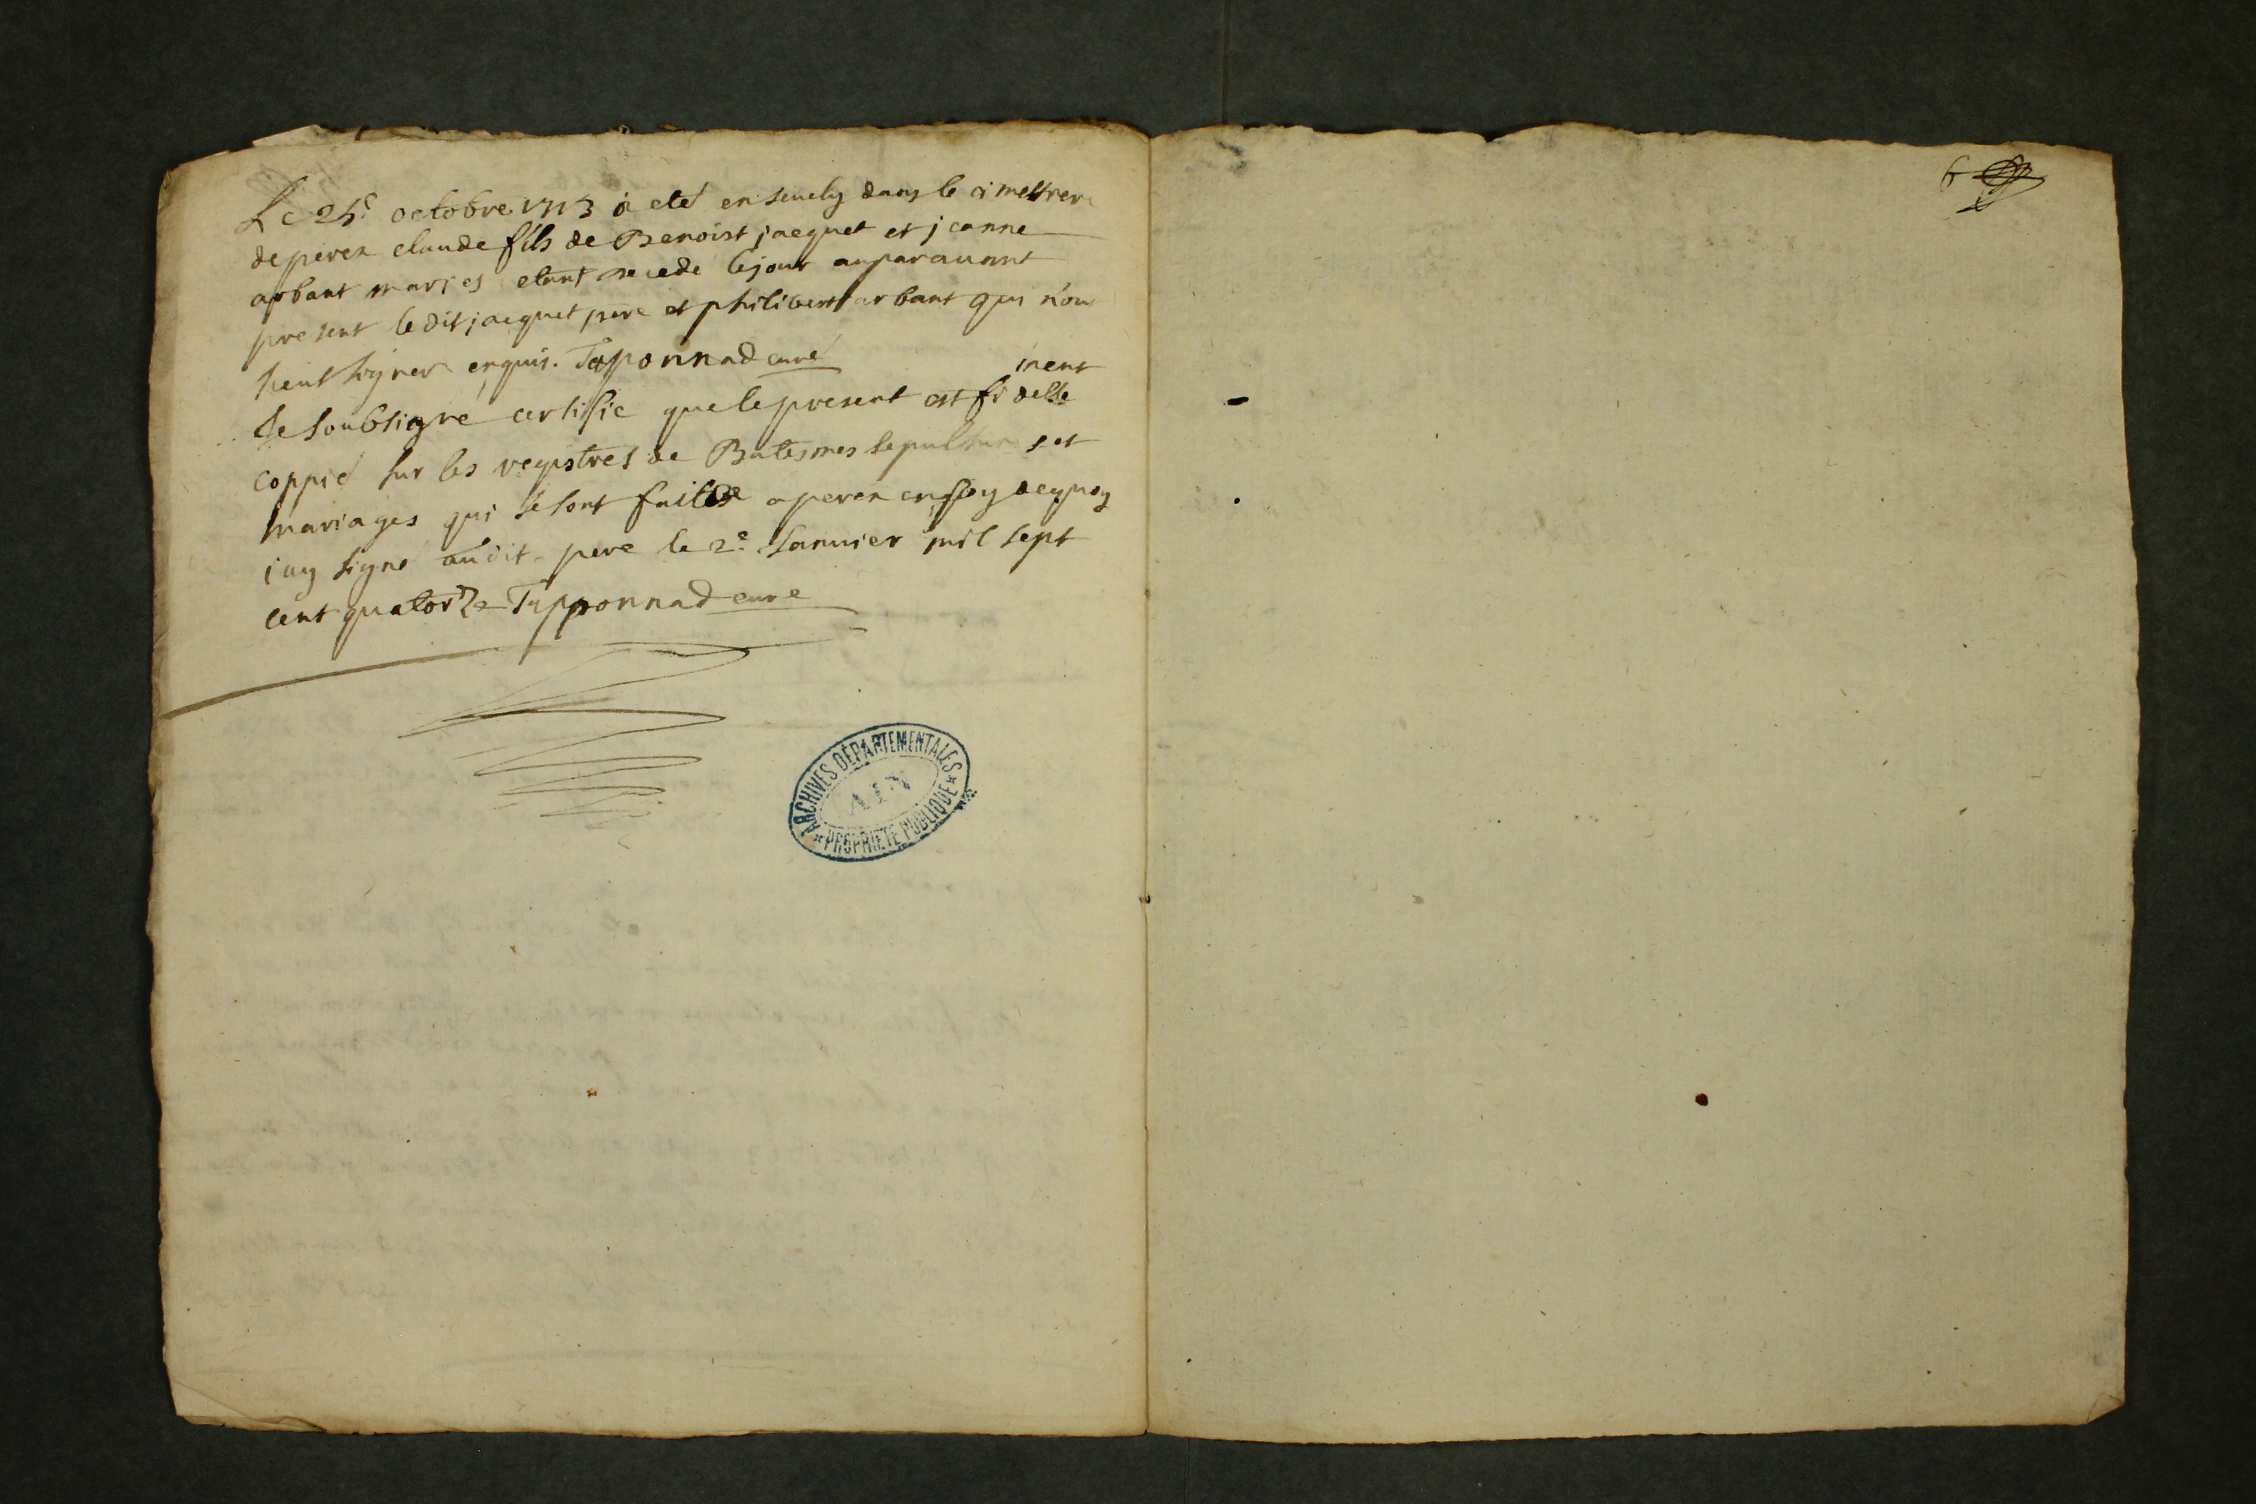 Le 25e octobre 1713 a eté ensevely dans le cimettiere
de perex claude fils de Benoist jacquet et jeanne
arbant maries etant decedé le jour auparavant
present le dit jacquet pere et philibert arbant qui n'on
sceut signer enquis. Tapponnad curé
Je soubsigné certifie que le present est fidelle
ment
coppié sur les registres de Batesmes sepultures et
mariages qui se sont faites a perex en foy de quoy
j'ay signé audit perex le 2e Janvier mil sept
cent quatorze Tapponnad curé
ARCHIVES DÉPARTEMENTALES
AIN
PROPRIÉTÉ PUBLIQUE
6